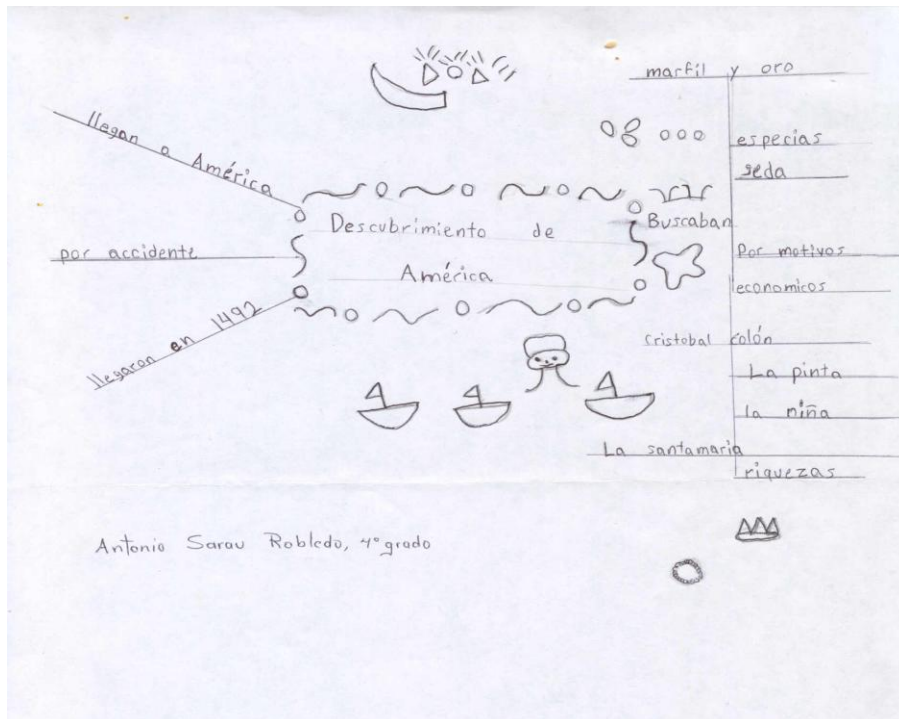 llegan a América
por accidente
llegaron en 1492
Descubrimiento de
América
marfil y oro
especias
seda
Buscaban
Por motivos
economicos
cristobal colón
La pinta
la niña
La santamaria
riquezas
Antonio Sarau Robledo, 4° grado